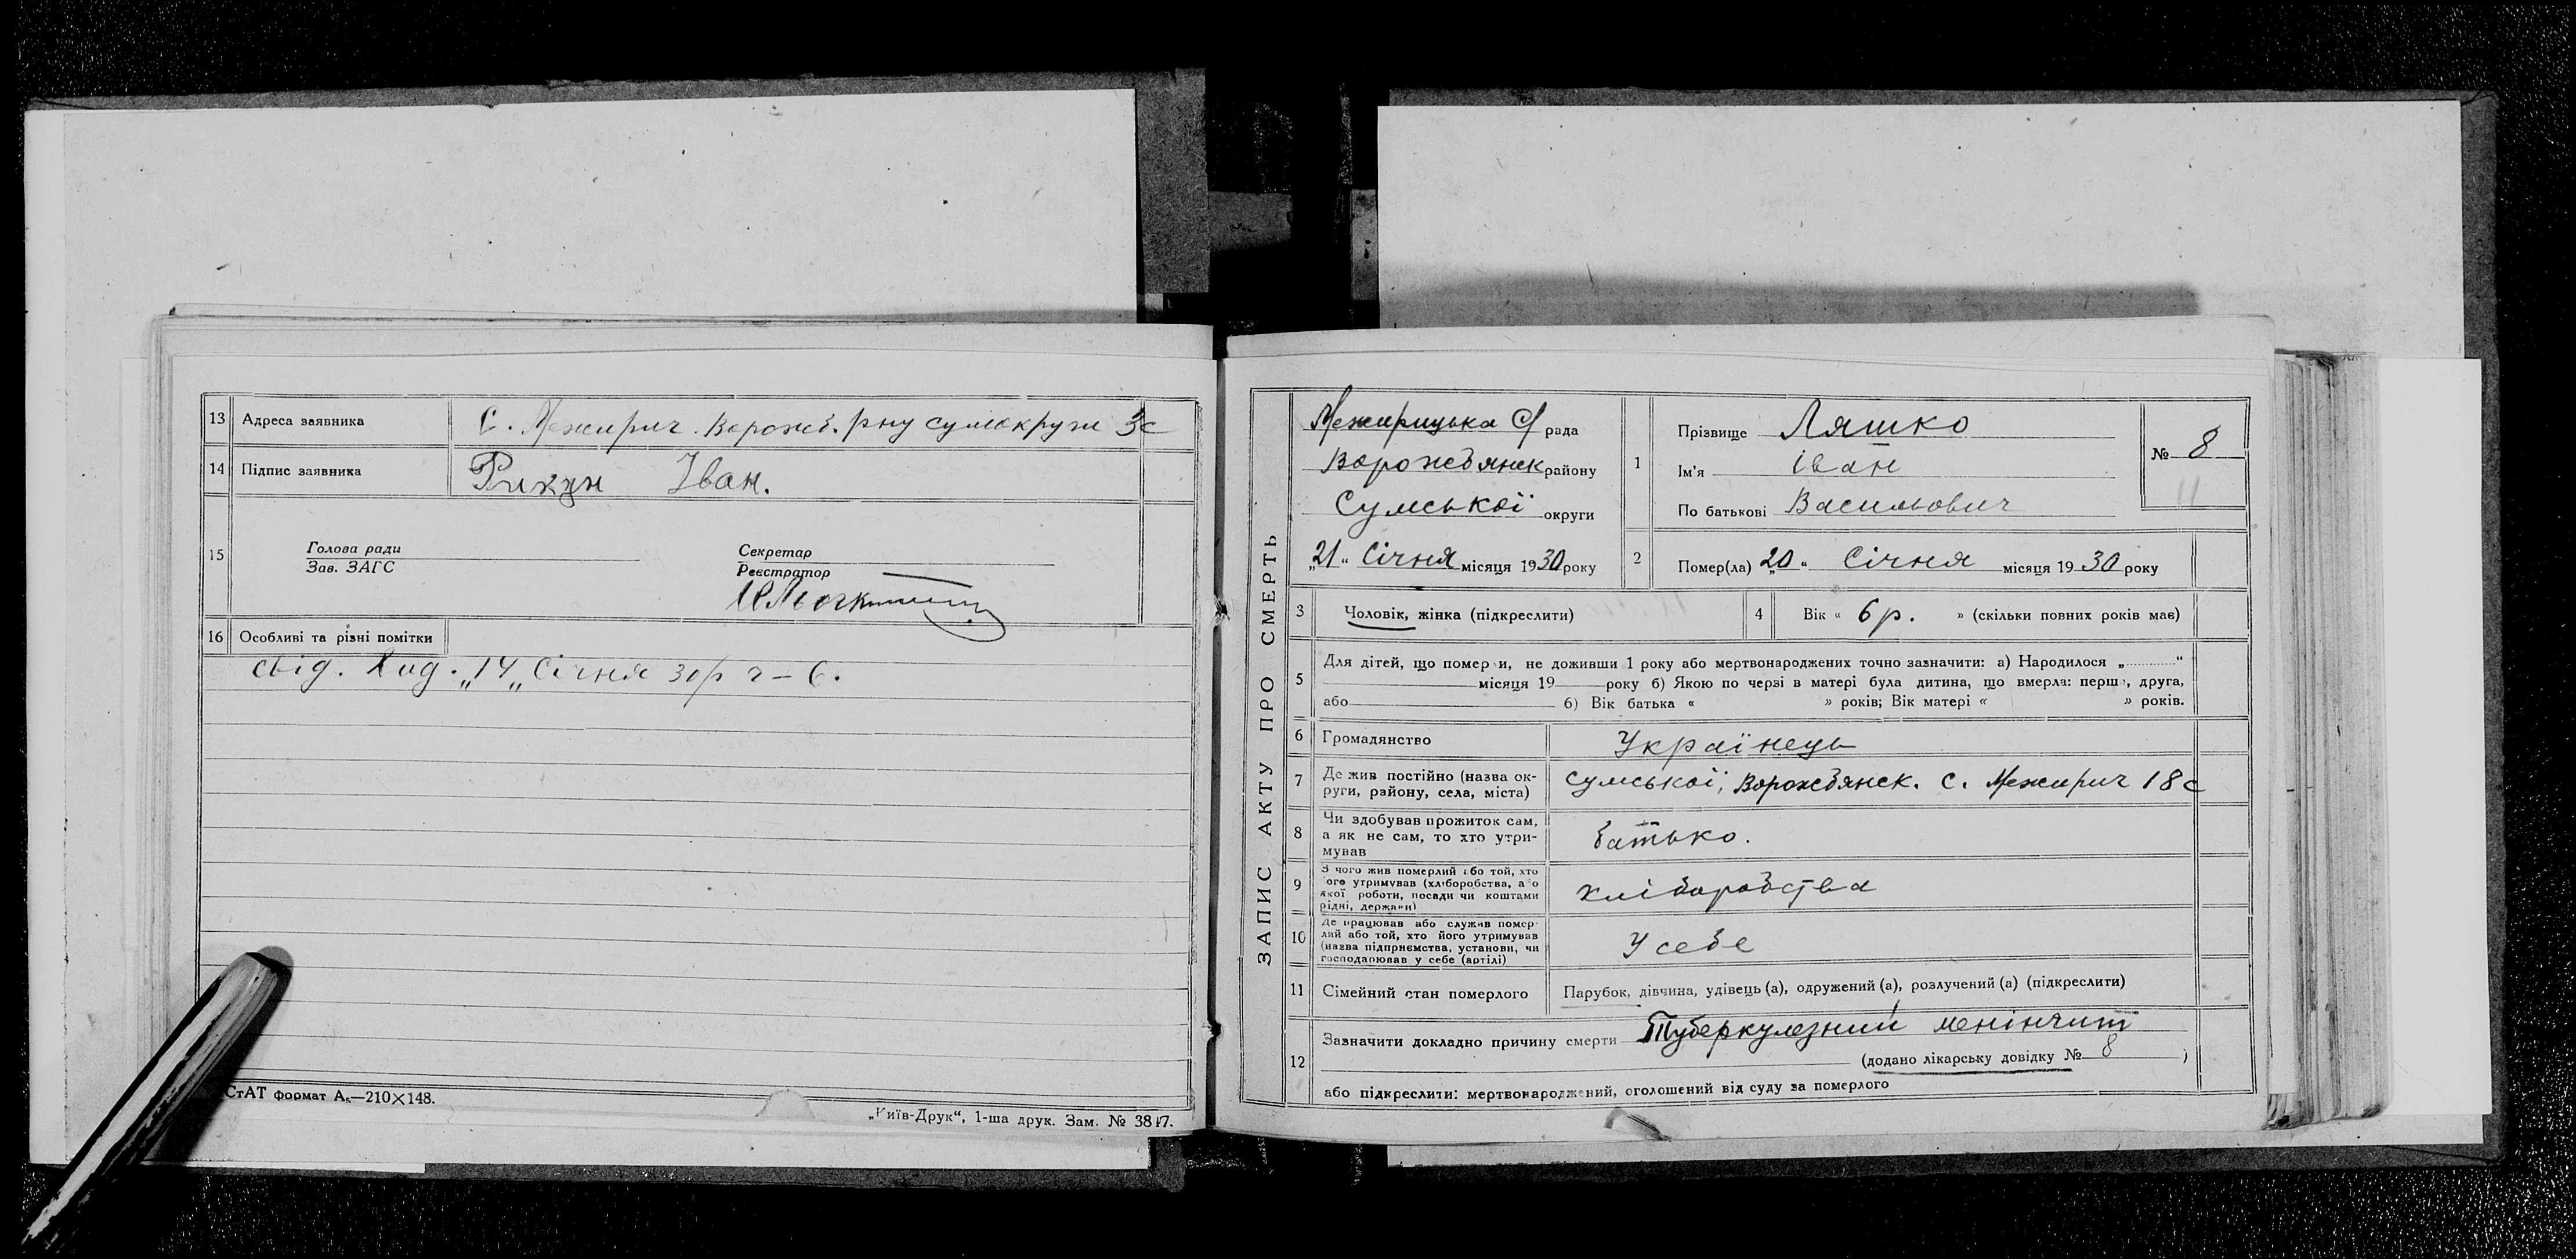 13 Адреса заявника С. Межирич. Ворожб. рну сумокруги 3с
14 Підпис заявника Рикун Іван.
15 Голова ради Секретар
Зав. ЗАГС Реєстратор
16 Особливі та різні помітки
свід. Вид. „14„ Січня 30р ч – 6.
СтАТ формат А₅—210×148.
„Київ-Друк“, 1-ша друк. Зам. № 3817.
ЗАПИС АКТУ ПРО СМЕРТЬ
Межирицька С/ рада
Ворожбянск району
Сумської округи
„21“ Січня місяця 1930 року
1 Прізвище Ляшко
Ім'я Іван
По батькові Васильович
№ 8
11
2 Помер(ла) „20“ Січня місяця 1930 року
3 Чоловік, жінка (підкреслити)
4 Вік « 6 р. » (скільки повних років має)
5 Для дітей, що померли, не доживши 1 року або мертвонароджених точно зазначити: а) Народилося „ “
місяця 19 року б) Якою по черзі в матері була дитина, що вмерла: перша, друга,
або б) Вік батька « » років; Вік матері « » років.
6 Громадянство Українець
7 Де жив постійно (назва ок-
руги, району, села, міста) сумської, Ворожбянск. с. Межирич 18с
8 Чи здобував прожиток сам,
а як не сам, то хто утри-
мував батько.
9 З чого жив померлий або той, хто
його утримував (хліборобства, або
якої роботи, посади чи коштами
рідні, держави) хліборобства
10 Де працював або служив помер-
лий або той, хто його утримував
(назва підприємства, установи, чи
господарював у себе (артілі) У себе
11 Сімейний стан померлого Парубок, дівчина, удівець (а), одружений (а), розлучений (а) (підкреслити)
12 Зазначити докладно причину смерти Туберкулезний менінчит
(додано лікарську довідку № 8 )
або підкреслити: мертвонароджений, оголошений від суду за померлого